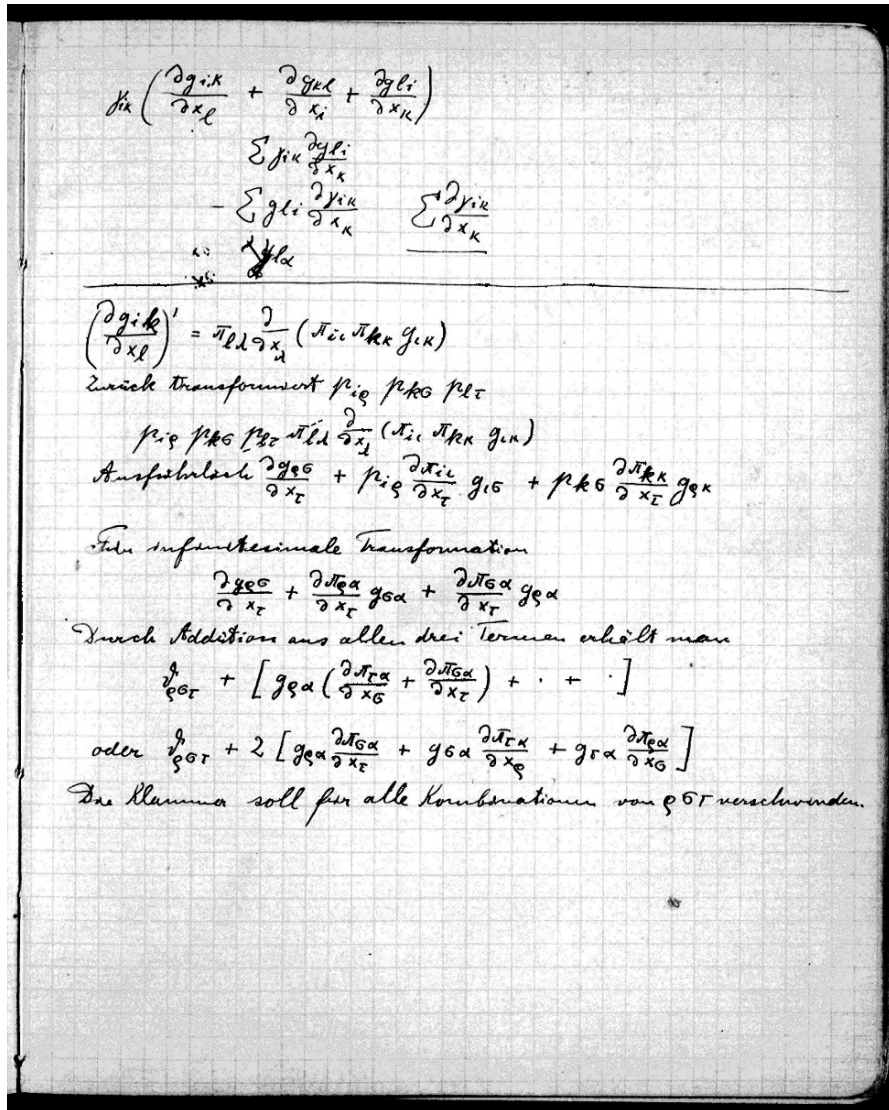 γ_ik ( ∂g_ik/∂x_l + ∂g_kl/∂x_i + ∂g_li/∂x_k )
Σ γ_ik ∂g_li/∂x_k
− Σ g_li ∂γ_ik/∂x_k    Σ ∂γ_ik/∂x_k
( ∂g_ik/∂x_l )' = π_lλ ∂/∂x_λ ( π_iι π_kκ g_ικ )
Zurück transformiert p_iρ p_kσ p_lτ
p_iρ p_kσ p_lτ π_lλ ∂/∂x_λ ( π_iι π_kκ g_ικ )
Ausführlich ∂g_ρσ/∂x_τ + p_iρ ∂π_iι/∂x_τ g_ισ + p_kσ ∂π_kκ/∂x_τ g_ρκ
infinitesimale Transformation
∂g_ρσ/∂x_τ + ∂π_ρα/∂x_τ g_σα + ∂π_σα/∂x_τ g_ρα
Durch Addition aus allen drei Termen erhält man
ϑ_ρστ + [ g_ρα ( ∂π_τα/∂x_σ + ∂π_σα/∂x_τ ) + · + · ]
oder ϑ_ρστ + 2 [ g_ρα ∂π_σα/∂x_τ + g_σα ∂π_τα/∂x_ρ + g_τα ∂π_ρα/∂x_σ ]
Die Klammer soll für alle Kombinationen von ρστ verschwinden.